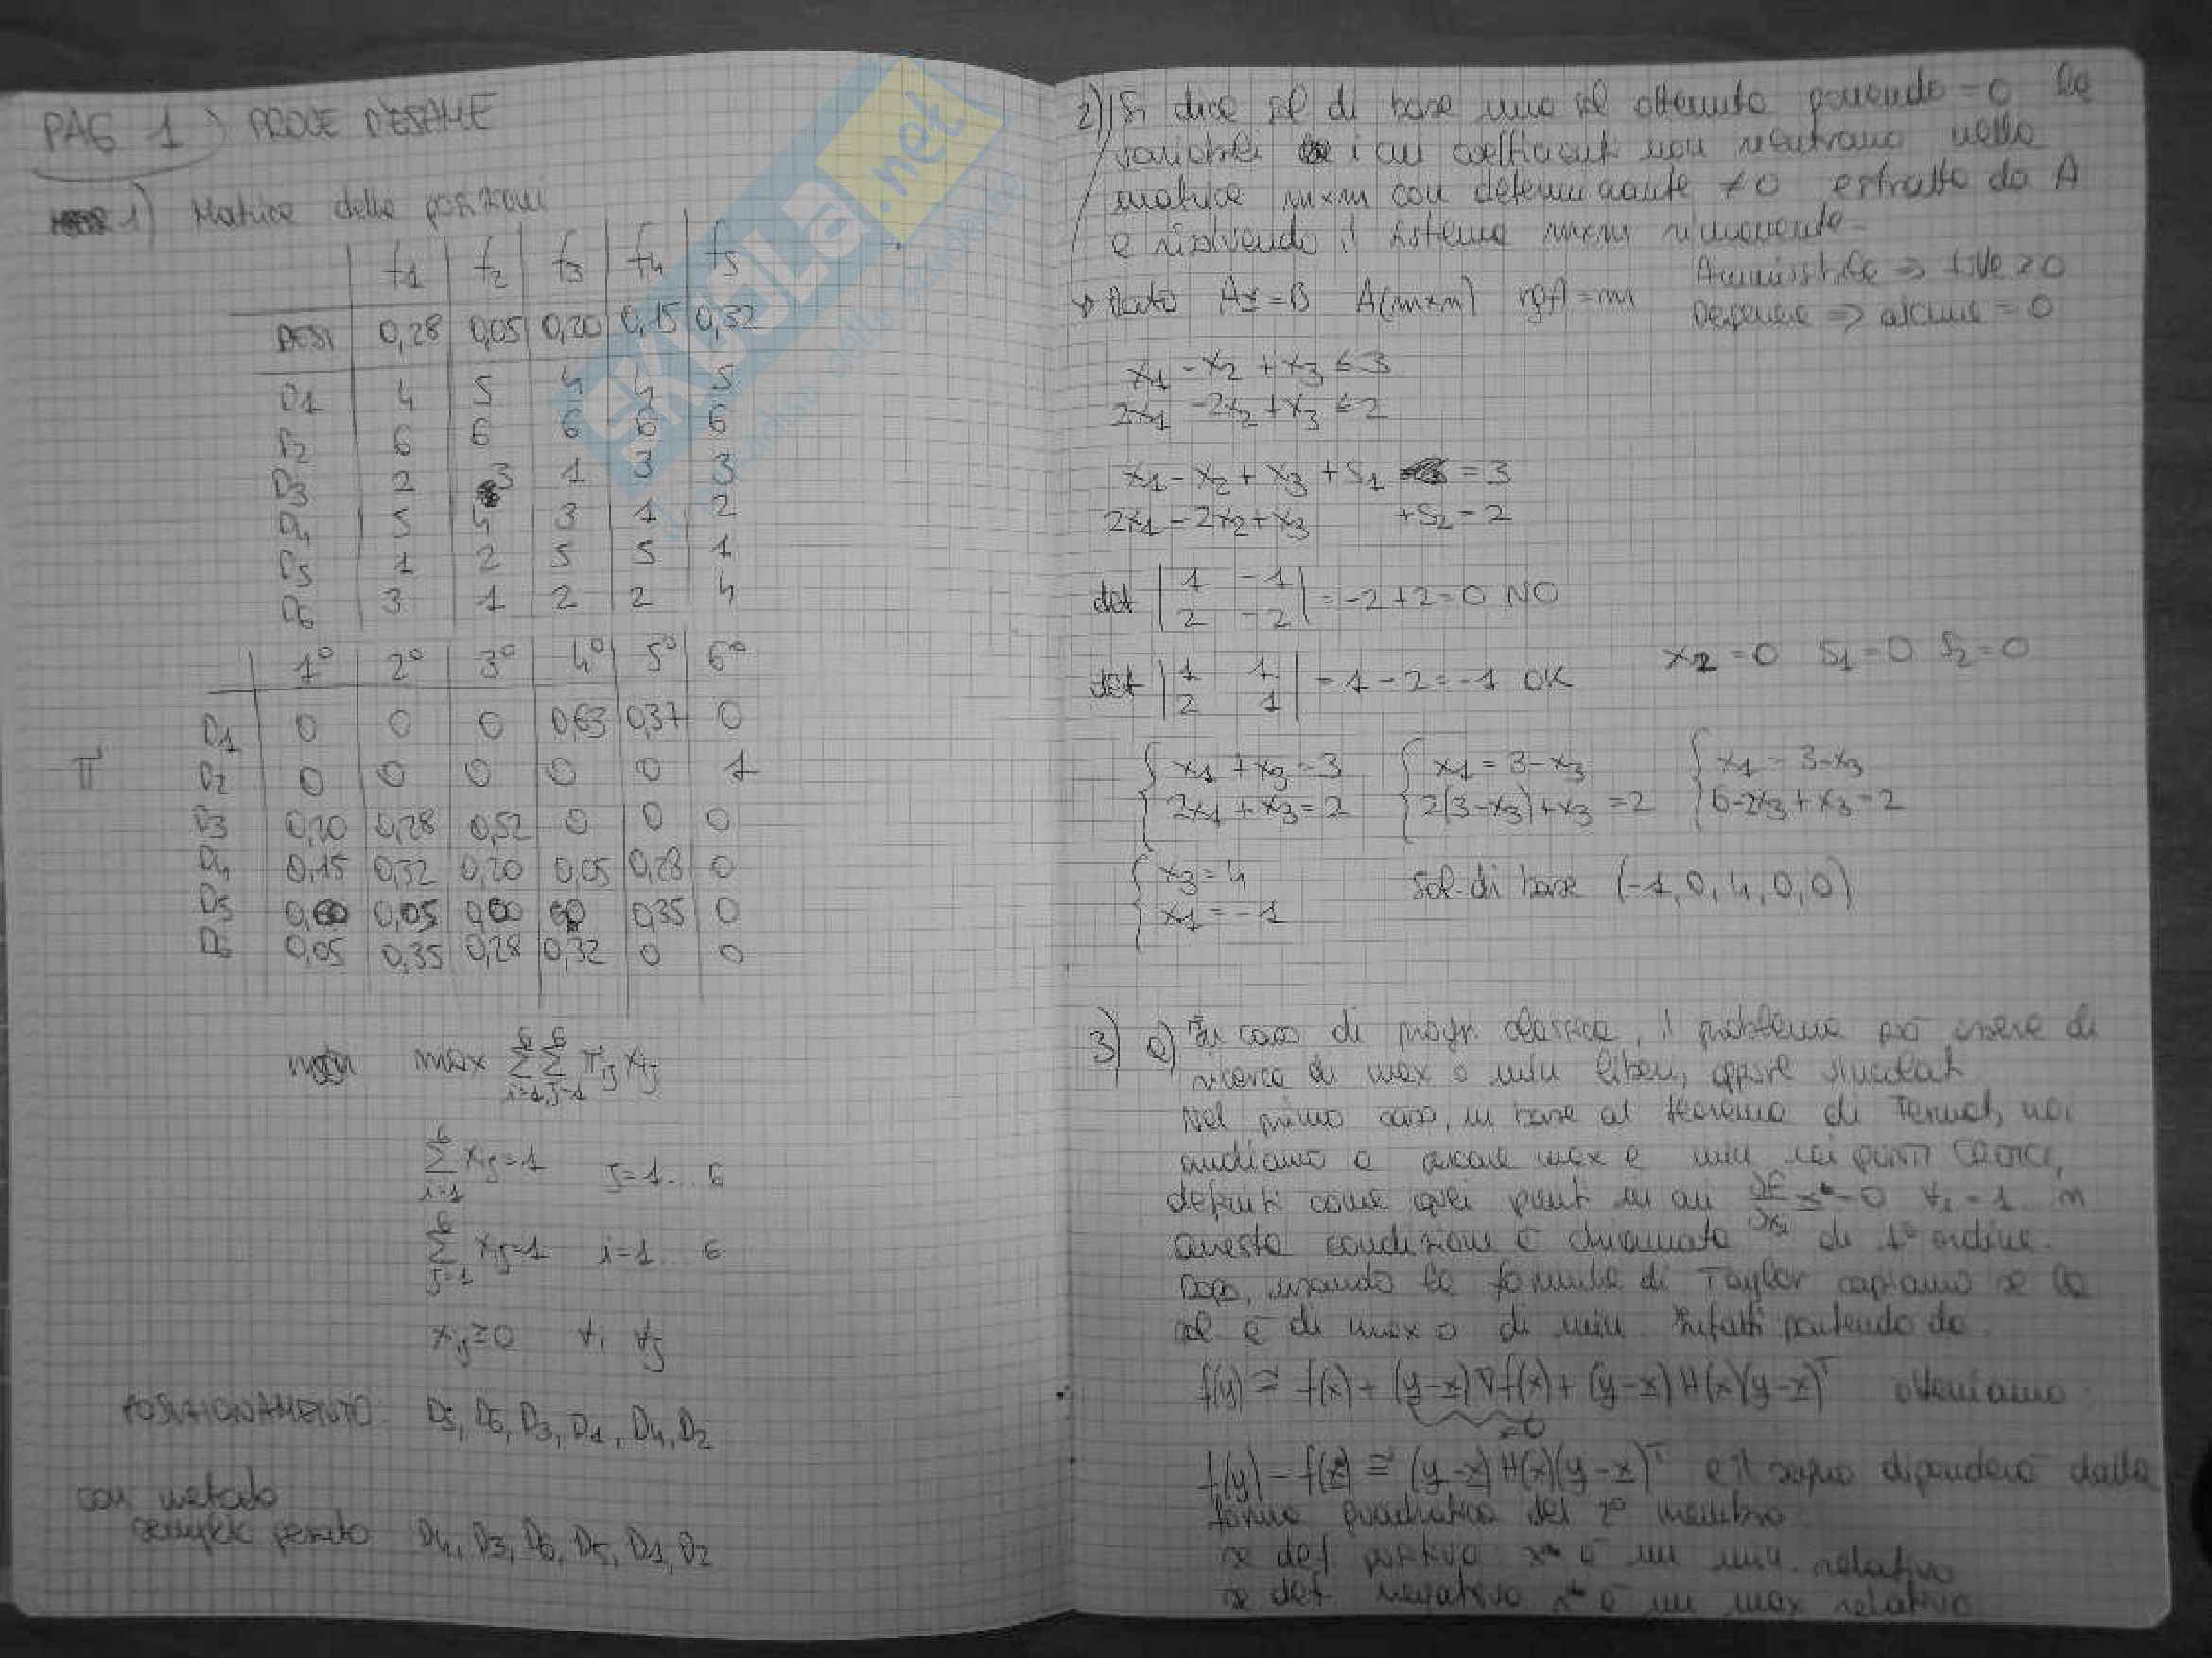 PAG 1) PROVE D'ESAME
1) Matrice delle posizioni
f1 f2 f3 f4 f5
PESI 0,28 0,05 0,20 0,15 0,32
D1 4 5 4 4 5
D2 6 6 6 6 6
D3 2 3 1 3 3
D4 5 4 3 1 2
D5 1 2 5 5 1
D6 3 1 2 2 4
1° 2° 3° 4° 5° 6°
D1 0 0 0 0,63 0,37 0
π D2 0 0 0 0 0 1
D3 0,20 0,28 0,52 0 0 0
D4 0,15 0,32 0,20 0,05 0,28 0
D5 0,60 0,05 0,00 0 0,35 0
D6 0,05 0,35 0,28 0,32 0 0
max Σ(i=1..6) Σ(j=1..6) πij xij
Σ(i=1..6) xij=1 j=1.. 6
Σ(j=1..6) xij=1 i=1.. 6
xij≥0 ∀i ∀j
POSIZIONAMENTO: D5, D6, D3, D1, D4, D2
con metodo
semplice pesato D4, D3, D6, D5, D1, D2
2) Si dice sol di base una sol ottenuta ponendo =0 le
variabili i cui coefficienti non rientrano nella
matrice mxm con determinante ≠0 estratta da A
e risolvendo il sistema mxm rimanente
Ammissibile => tutte ≥0
Degenere => alcune =0
Dato Ax=B A(mxn) rgA=m
x1 - x2 + x3 ≤ 3
2x1 - 2x2 + x3 ≤ 2
x1 - x2 + x3 + S1 = 3
2x1 - 2x2 + x3 + S2 = 2
det |1 -1; 2 -2| = -2+2=0 NO
det |1 1; 2 1| = 1-2=-1 OK x2=0 S1=0 S2=0
{x1+x3=3 {x1=3-x3 {x1=3-x3
{2x1+x3=2 {2(3-x3)+x3=2 {6-2x3+x3=2
{x3=4 Sol. di base (-1,0,4,0,0)
{x1=-1
3) a) In caso di progr. classica, il problema può essere di
ricerca di max o min liberi, oppure vincolati
Nel primo caso, in base al teorema di Fermat, noi
andiamo a cercare max e min nei punti CRITICI,
definiti come quei punti in cui ∂f/∂xi x*=0 ∀i=1 n
questa condizione è chiamata di 1° ordine.
Dopo, usando la formula di Taylor capiamo se la
sol. è di max o di min. Infatti partendo da
f(y) ≅ f(x) + (y-x)∇f(x) + (y-x)H(x)(y-x)ᵀ otteniamo:
=0
f(y) - f(x) ≅ (y-x)H(x)(y-x)ᵀ e il segno dipenderà dalla
forma quadratica del 2° membro
se def. positiva x* è un min. relativo
se def. negativa x* è un max relativo
SKUOLa.net